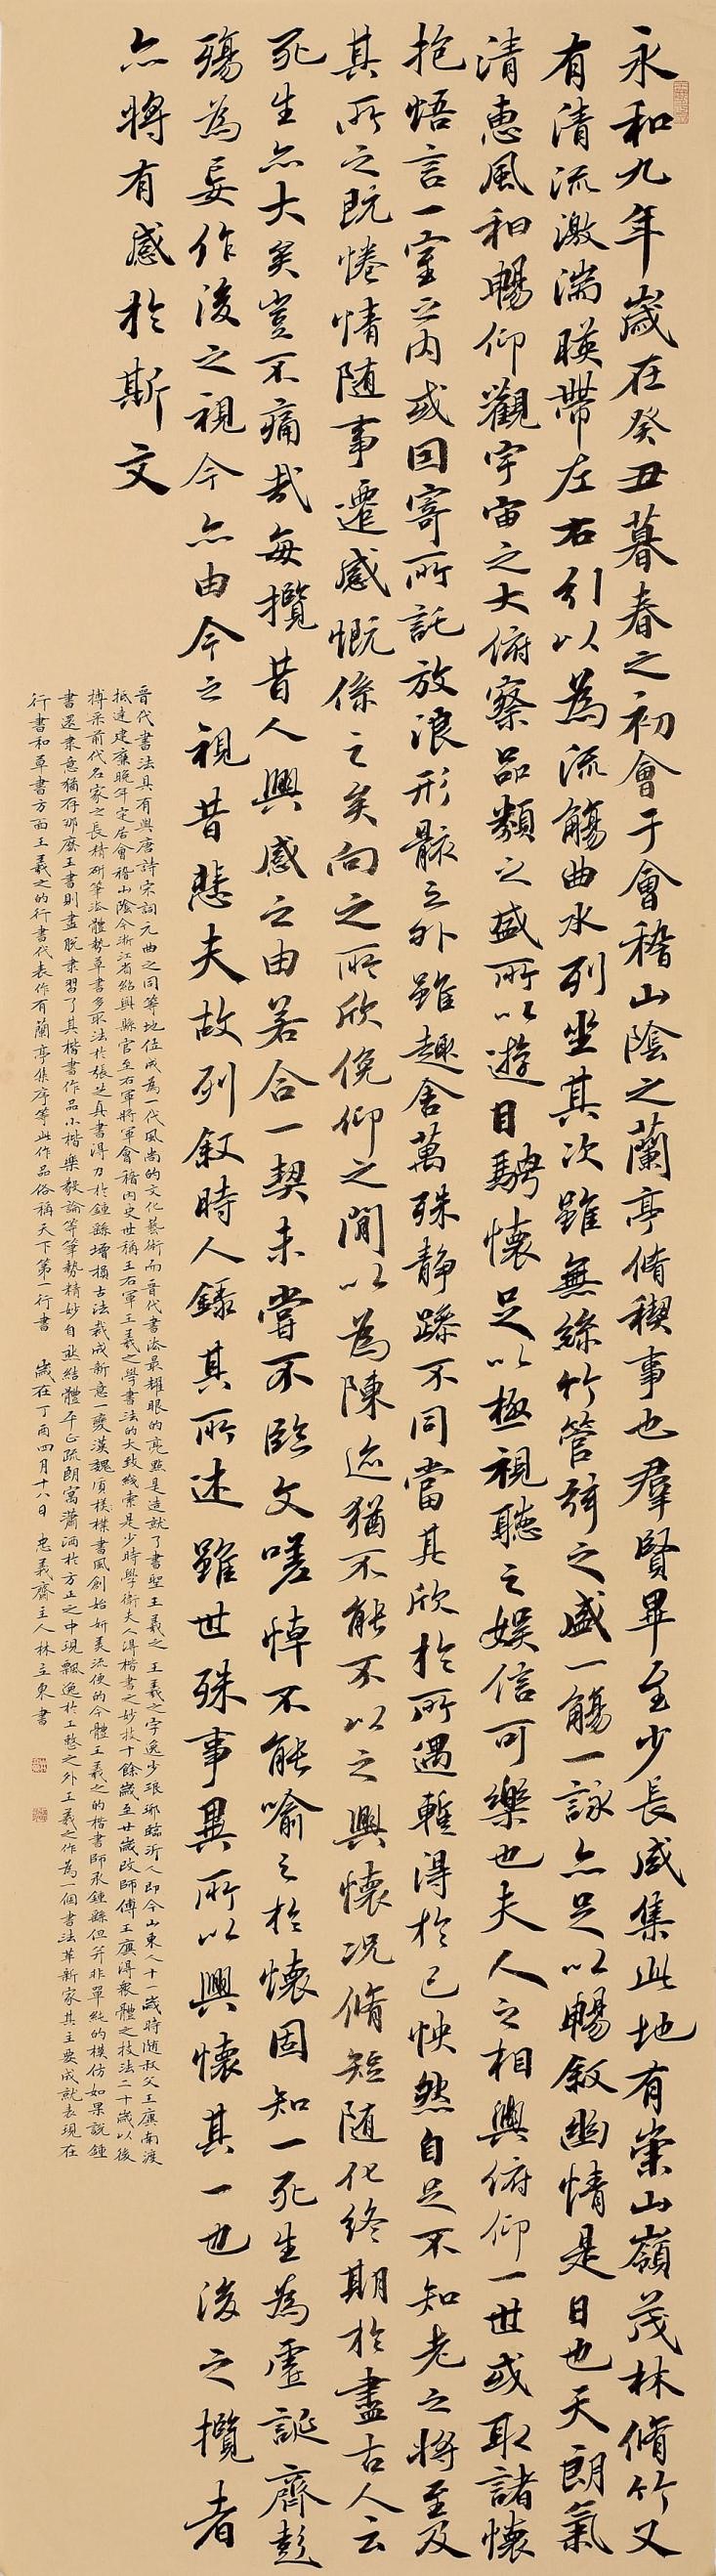 永和九年歲在癸丑暮春之初會于會稽山陰之蘭亭脩稧事也羣賢畢至少長咸集此地有崇山嶺茂林脩竹又
有清流激湍暎帶左右引以為流觴曲水列坐其次雖無絲竹管弦之盛一觴一詠亦足以暢敘幽情是日也天朗氣
清惠風和暢仰觀宇宙之大俯察品類之盛所以遊目騁懷足以極視聽之娛信可樂也夫人之相與俯仰一世或取諸懷
抱悟言一室之內或因寄所託放浪形骸之外雖趣舍萬殊静躁不同當其欣於所遇暫得於己怏然自足不知老之將至及
其所之既惓情隨事遷感慨係之矣向之所欣俛仰之閒以為陳迹猶不能不以之興懷況脩短隨化終期於盡古人云
死生亦大矣豈不痛哉每攬昔人興感之由若合一契未嘗不臨文嗟悼不能喻之於懷固知一死生為虛誕齊彭
殤為妄作後之視今亦由今之視昔悲夫故列敘時人錄其所述雖世殊事異所以興懷其一也後之攬者
亦將有感於斯文
晉代書法具有與唐詩宋詞元曲之同等地位成為一代風尚的文化藝術而晉代書法最耀眼的亮點是造就了書聖王羲之 王羲之字逸少琅琊臨沂人即今山東人十一歲時隨叔父王廙南渡
抵達建鄴晚年定居會稽山陰今浙江省紹興縣官至右軍將軍會稽內史世稱王右軍王羲之學書法的大致綫索是少時學衛夫人得楷書之妙技十餘歲至廿歲改師傅王廙得眾體之技法二十歲以後
博采前代名家之長精研筆法體勢草書多取法於張芝真書得力於鍾繇增損古法裁成新意一變漢魏質樸書風創始妍美流便的今體王羲之的楷書師承鍾繇但并非單純的模仿如果說鍾
書還隸意猶存那麼王書則盡脫隸習了其楷書作品小楷樂毅論等筆勢精妙自然結體平正疏朗寓瀟洒於方正之中現飄逸於工整之外王羲之作為一個書法革新家其主要成就表現在
行書和草書方面王羲之的行書代表作有蘭亭集序等此作品俗稱天下第一行書 歲在丁酉四月十八日 忠義齋主人林立東書